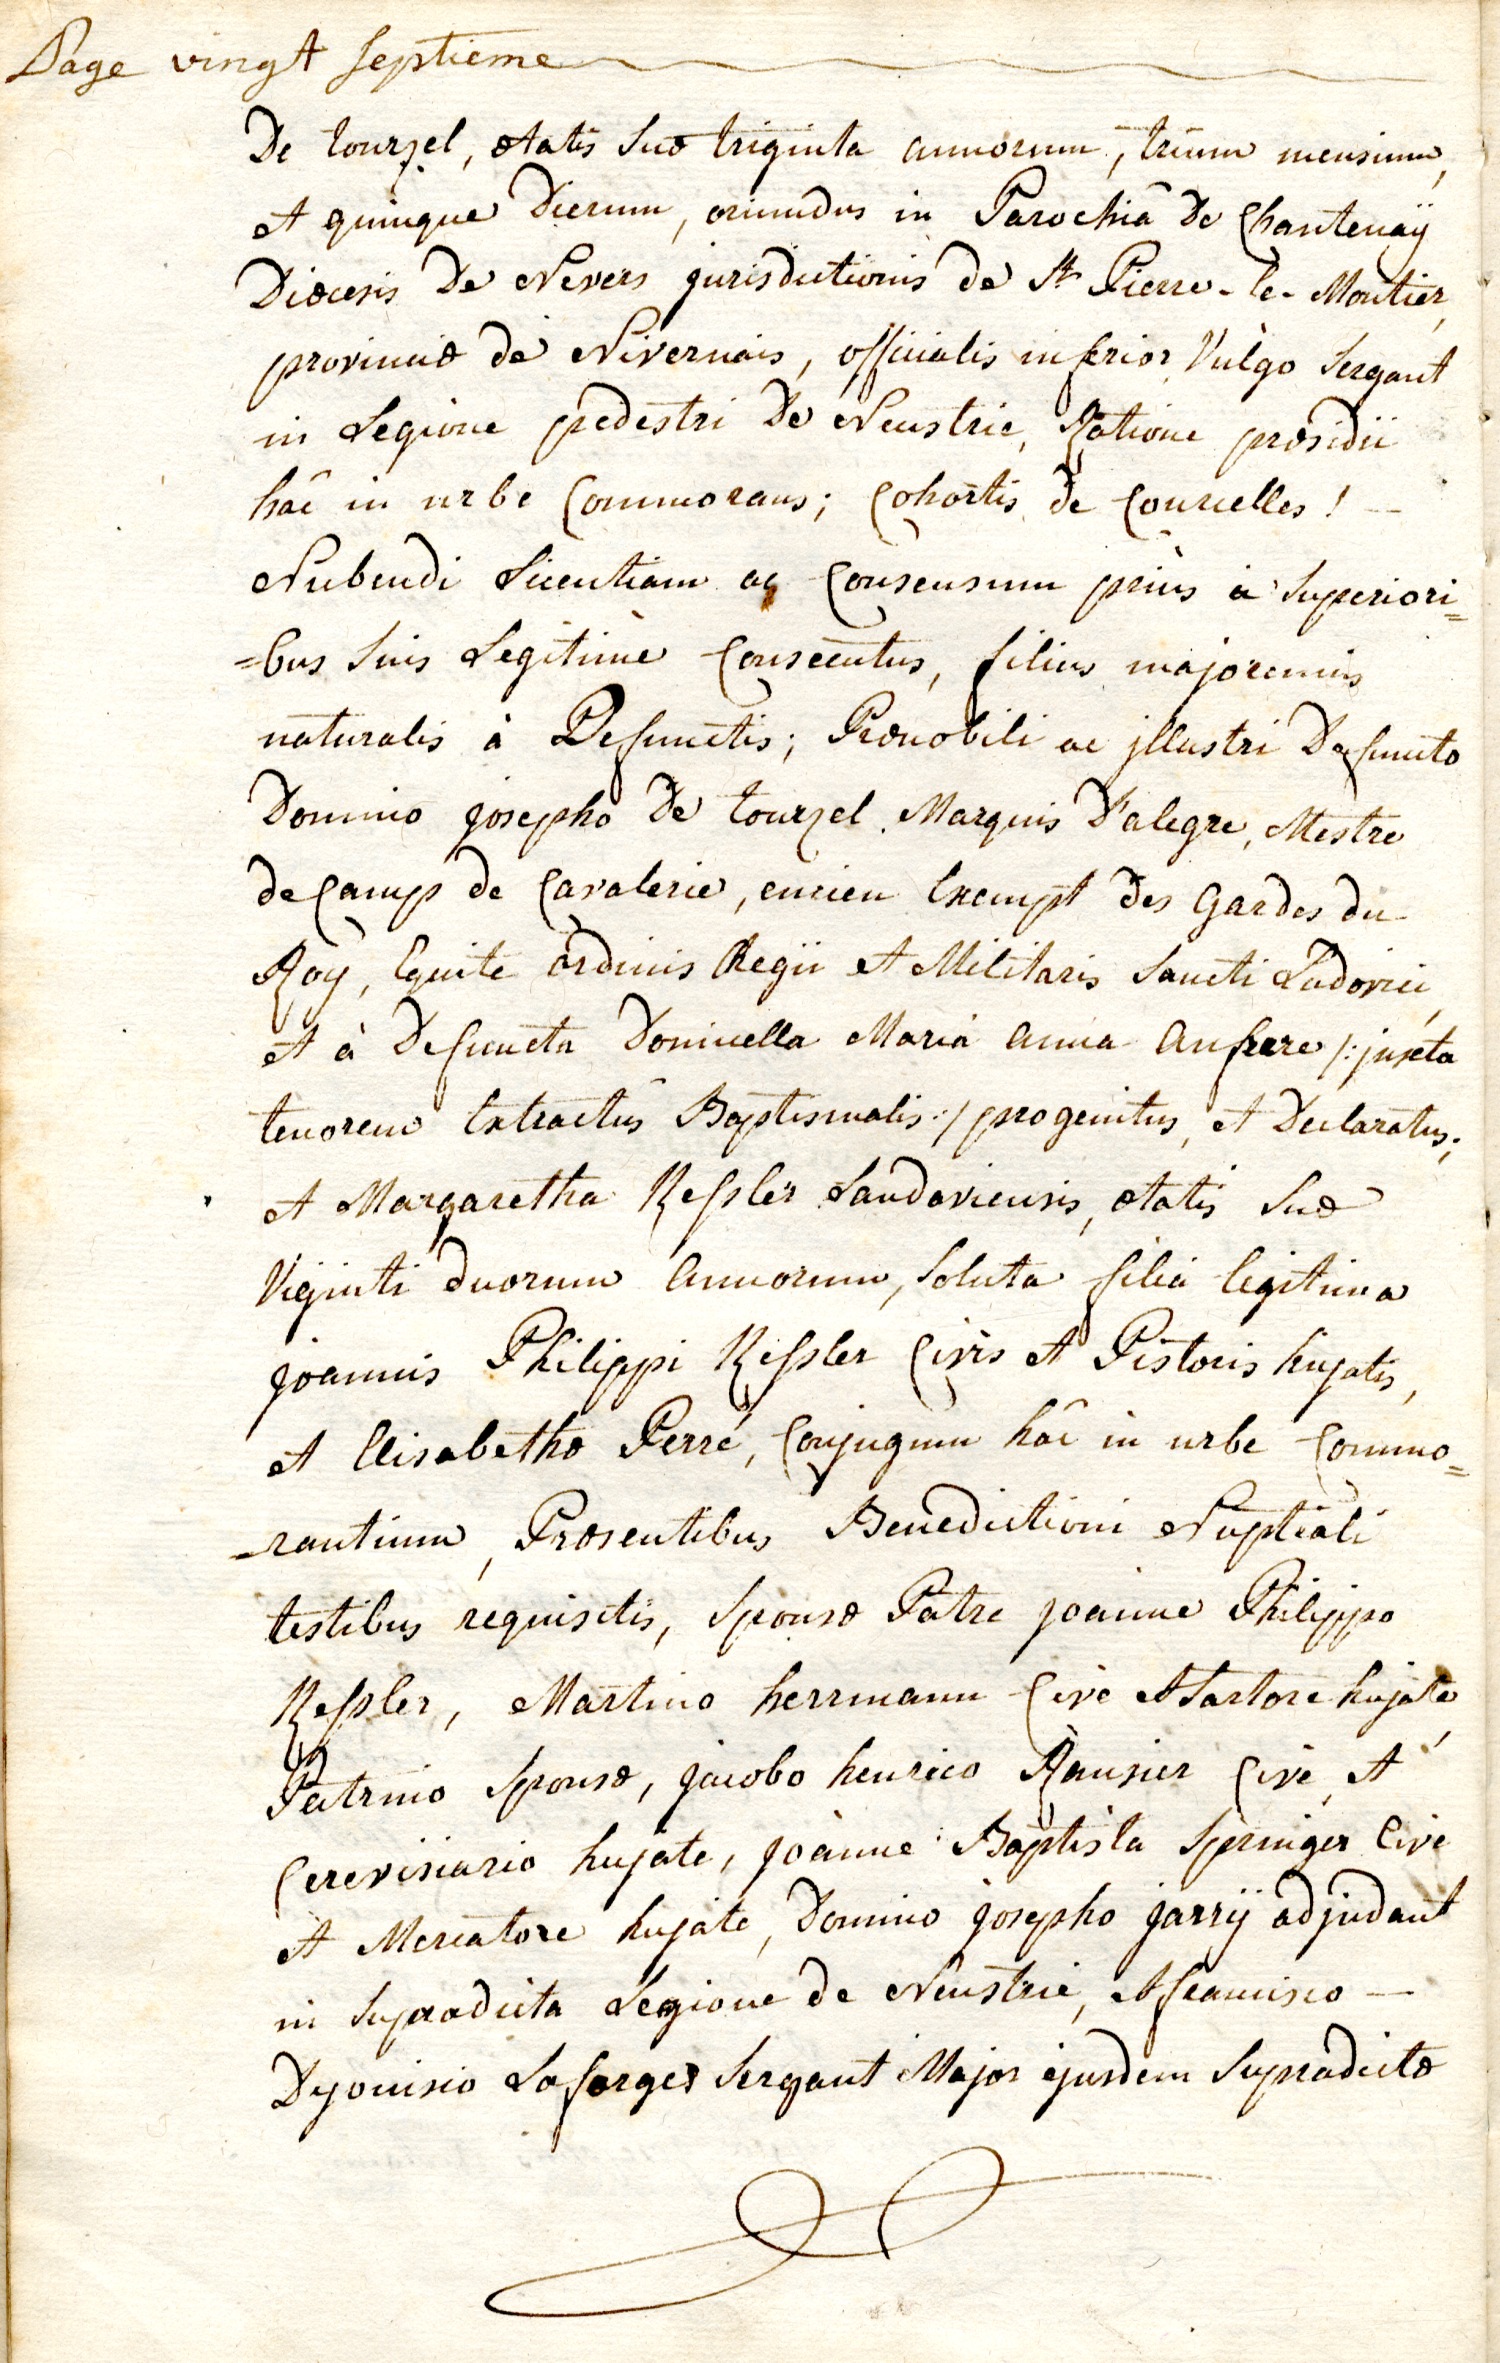 Page vingt septieme
De tourzel, ætatis suæ triginta annorum, trium mensium,
et quinque Dierum, oriundus in Parochiâ De Chantenaÿ
Diæcesis De Nevers jurisdictionis de St. Pierre-le-Moutier,
provinciæ de Nivernais, officialis inferior, Vulgo Sergant
in Legione pedestri De Neustrie, Ratione præsidii
hâc in urbe Commorans; Cohortis de Courcelles! -
Nubendi Licentiam ac Consensum priùs à Superiori=
=bus Suis Legitimè Consecutus, filius majorennis
naturalis à Defunctis; Prænobili ac jllustri Defuncto
Domino josepho De tourzel Marquis D'alegre, Mestre
de Camp de Cavalerie, encien Exempt des Gardes du
Roy, Equite ordinis Regii et Militaris Sancti Ludovici,
et à Defuncta Domicella Maria anna Aufrere /: juxta
tenorem Extractûs Baptismalis :/ progenitus, et Declaratus;
et Margaretha Keßler Landaviensis, ætatis Suæ
Viginti duorum annorum, Soluta filia legitima
joannis Philippi Keßler Civis et Pistoris hujatis,
et Elisabethæ Ferré, Conjugum hâc in urbe Commo=
=rantium, Præsentibus Benedictioni Nuptiali
testibus requisitis, Sponsæ Patre joanne Philippo
Keßler, Martino herrmann Cive et Sartore hujate,
Patrino Sponsæ, jacobo henrico Rausier Cive, et
Cerevisiario hujate, joanne Baptista Springer Cive
et Mercatore hujate, Domino josepho jarrÿ adjudant
in Supradicta Legione de Neustrie, et francisco -
Dyonisio Laforges Sergant Major ejusdem Supradictæ